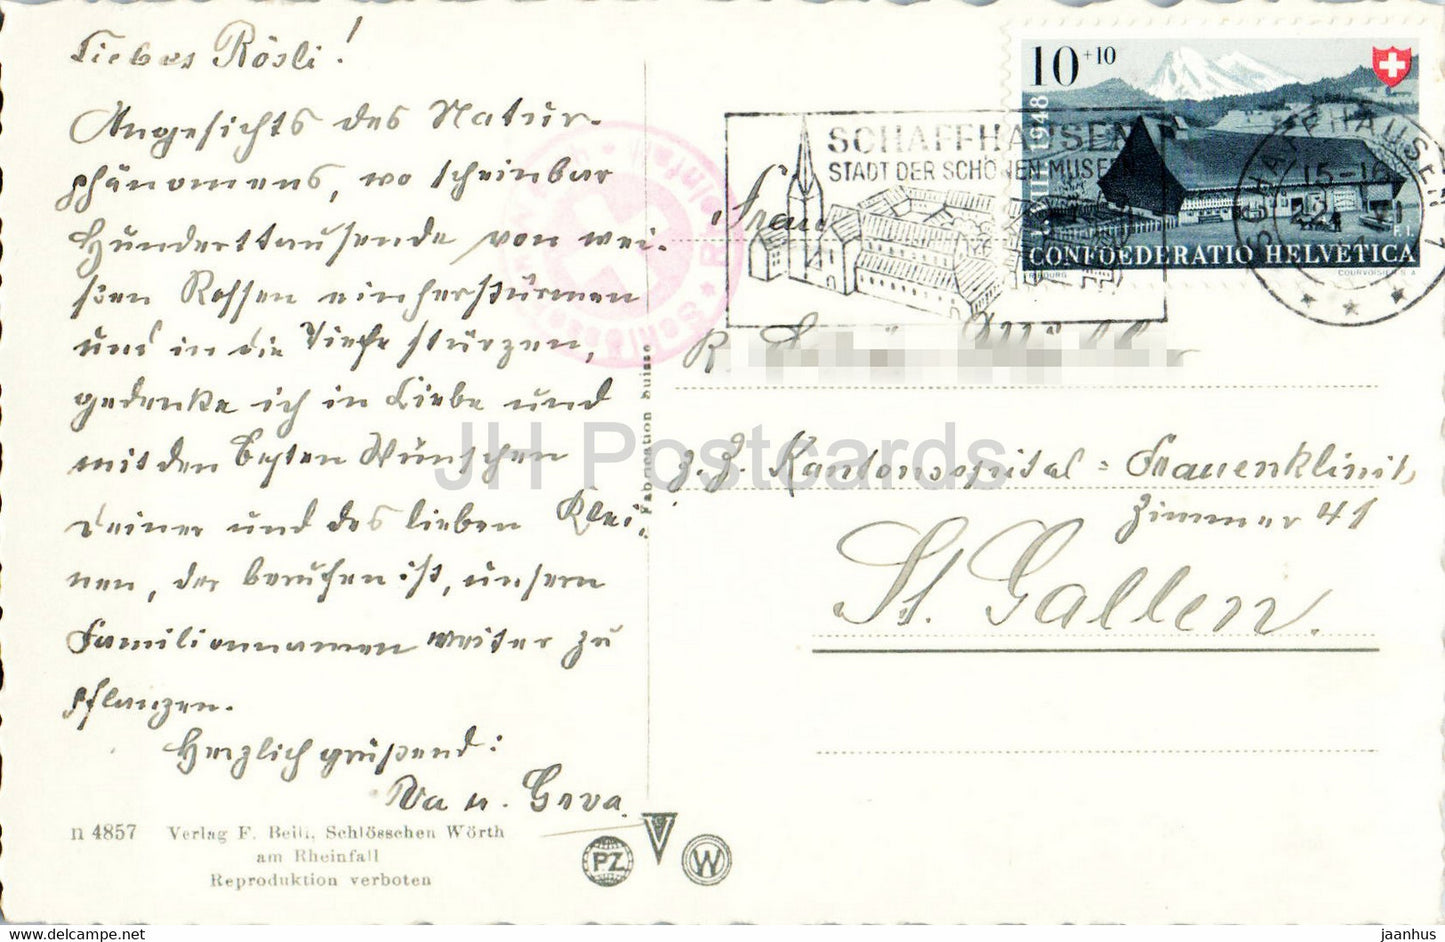 Liebes Rösli!
Angesichts des Natur-
phänomens, wo scheinbar
Hunderttausende von wei-
ßen Rossen einherstürmen
und in die Tiefe stürzen,
gedenke ich in Liebe und
mit den besten Wünschen
Deiner und des lieben Klei-
nen, der berufen ist, unsern
Familiennamen weiter zu
pflanzen.
Herzlich grüßend:
n 4857 Verlag F. Beili, Schlösschen Wörth
am Rheinfall
Reproduktion verboten
PZ
W
Fabrication suisse
Schlösschen Wörth Rheinfall
SCHAFFHAUSEN
STADT DER SCHÖNEN MUSEEN
10+10
1948
CONFOEDERATIO HELVETICA
FRIBOURG
COURVOISIER S.A.
SCHAFFHAUSEN 1
15-16
Frau
R.
z. Z. Kantonsspital = Frauenklinik
Zimmer 41
St. Gallen.
JH Postcards
www.delcampe.net
jaanhus